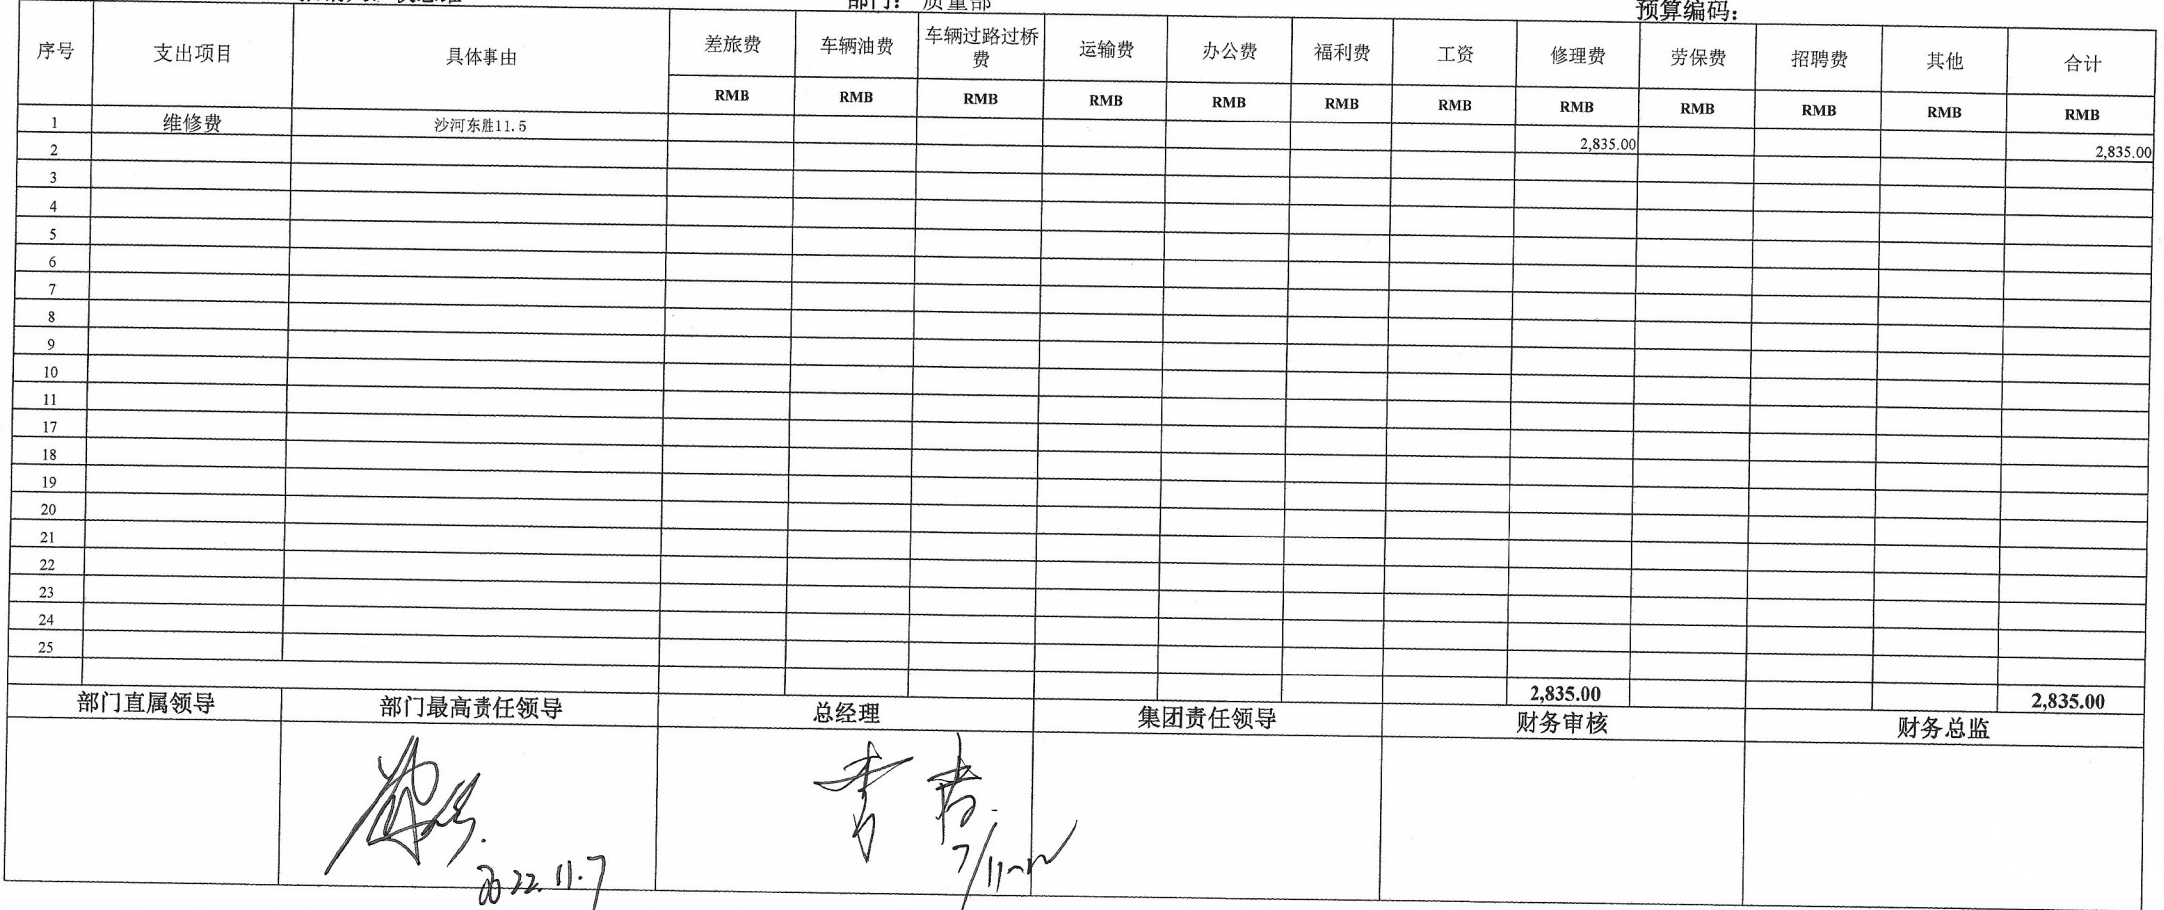 部门： 质量部
预算编码：
序号 支出项目 具体事由 差旅费 车辆油费 车辆过路过桥费 运输费 办公费 福利费 工资 修理费 劳保费 招聘费 其他 合计
RMB RMB RMB RMB RMB RMB RMB RMB RMB RMB RMB RMB
1 维修费 沙河东胜11.5 2,835.00 2,835.00
2
3
4
5
6
7
8
9
10
11
17
18
19
20
21
22
23
24
25
2,835.00 2,835.00
部门直属领导 部门最高责任领导 总经理 集团责任领导 财务审核 财务总监
2022.11.7